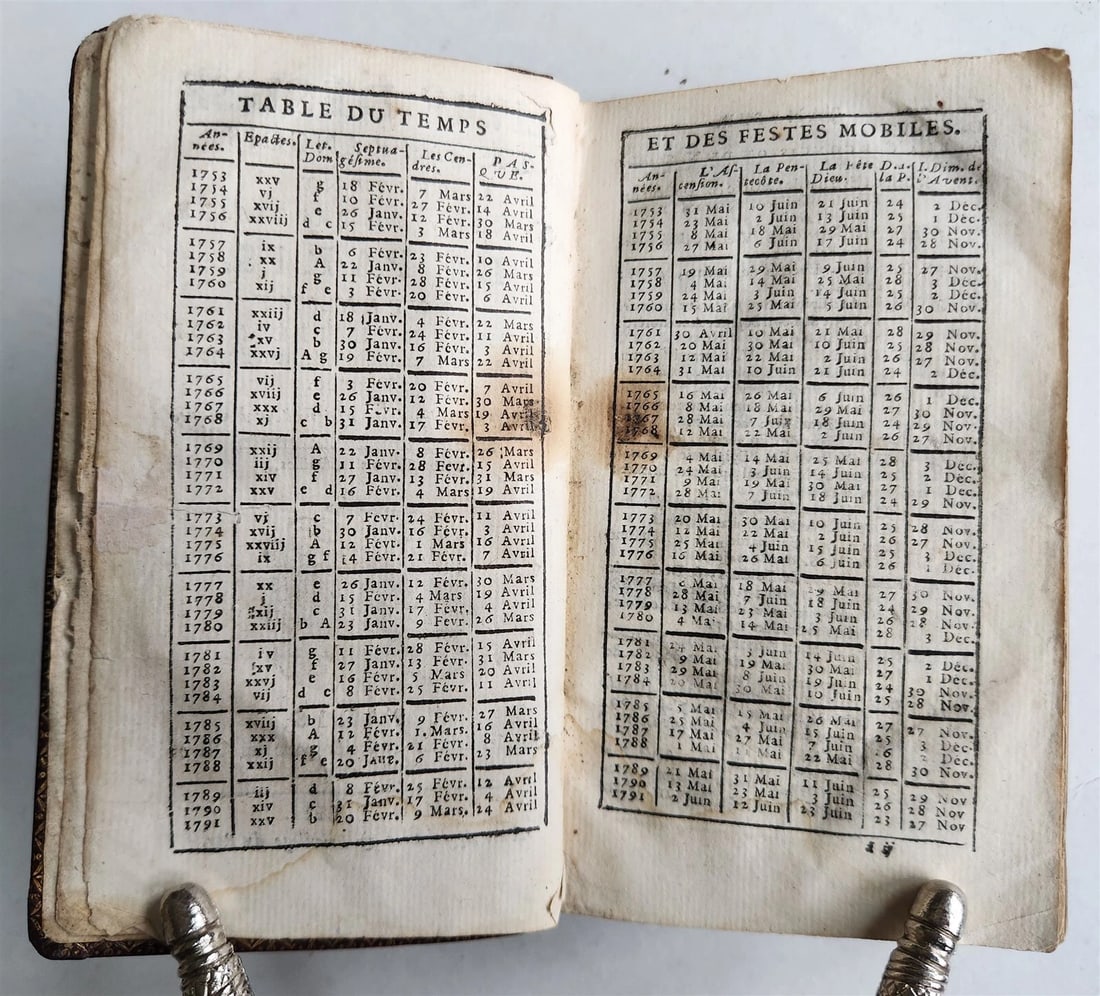 TABLE DU TEMPS
An-nées. Epactes. Let. Dom Septua-gésime. Les Cen-dres. PAS-QUE.
1753 xxv g 18 Févr. 7 Mars 22 Avril
1754 vj f 10 Févr. 27 Févr. 14 Avril
1755 xvij e 26 Janv. 12 Févr. 30 Mars
1756 xxviij d c 15 Févr. 3 Mars 18 Avril
1757 ix b 6 Févr. 23 Févr. 10 Avril
1758 xx A 22 Janv. 8 Févr. 26 Mars
1759 j g 11 Févr. 28 Févr. 15 Avril
1760 xij f e 3 Févr. 20 Févr. 6 Avril
1761 xxiij d 18 Janv. 4 Févr. 22 Mars
1762 iv c 7 Févr. 24 Févr. 11 Avril
1763 xv b 30 Janv. 16 Févr. 3 Avril
1764 xxvj A g 19 Févr. 7 Mars 22 Avril
1765 vij f 3 Févr. 20 Févr. 7 Avril
1766 xviij e 26 Janv. 12 Févr. 30 Mars
1767 xxx d 15 Févr. 4 Mars 19 Avril
1768 xj c b 31 Janv. 17 Févr. 3 Avril
1769 xxij A 22 Janv. 8 Févr. 26 Mars
1770 iij g 11 Févr. 28 Févr. 15 Avril
1771 xiv f 27 Janv. 13 Févr. 31 Mars
1772 xxv e d 16 Févr. 4 Mars 19 Avril
1773 vj c 7 Févr. 24 Févr. 11 Avril
1774 xvij b 30 Janv. 16 Févr. 3 Avril
1775 xxviij A 12 Févr. 1 Mars 16 Avril
1776 ix g f 14 Févr. 21 Févr. 7 Avril
1777 xx e 26 Janv. 12 Févr. 30 Mars
1778 j d 15 Févr. 4 Mars 19 Avril
1779 xij c 31 Janv. 17 Févr. 4 Avril
1780 xxiij b A 23 Janv. 9 Févr. 26 Mars
1781 iv g 11 Févr. 28 Févr. 15 Avril
1782 xv f 27 Janv. 13 Févr. 31 Mars
1783 xxvj e 16 Févr. 5 Mars 20 Avril
1784 vij d c 8 Févr. 25 Févr. 11 Avril
1785 xviij b 23 Janv. 9 Févr. 27 Mars
1786 xxx A 12 Févr. 1. Mars. 16 Avril
1787 xj g 4 Févr. 21 Févr. 8 Avril
1788 xxij f e 20 Janv. 6 Févr. 23 Mars
1789 iij d 8 Févr. 25 Févr. 12 Avril
1790 xiv c 31 Janv. 17 Févr. 4 Avril
1791 xxv b 20 Févr. 9 Mars. 24 Avril
ET DES FESTES MOBILES.
An-nées. L'As-cension. La Pen-tecôte. La Fête Dieu. la P. I. Dim. de l'Avent.
1753 31 Mai 10 Juin 21 Juin 24 2 Déc.
1754 23 Mai 2 Juin 13 Juin 25 1 Déc.
1755 8 Mai 18 Mai 29 Mai 27 30 Nov.
1756 27 Mai 6 Juin 17 Juin 24 28 Nov.
1757 19 Mai 29 Mai 9 Juin 25 27 Nov.
1758 4 Mai 14 Mai 25 Mai 28 3 Déc.
1759 24 Mai 3 Juin 14 Juin 25 2 Déc.
1760 15 Mai 25 Mai 5 Juin 26 30 Nov.
1761 30 Avril 10 Mai 21 Mai 28 29 Nov.
1762 20 Mai 30 Mai 10 Juin 25 28 Nov.
1763 12 Mai 22 Mai 2 Juin 26 27 Nov.
1764 31 Mai 10 Juin 21 Juin 24 2 Déc.
1765 16 Mai 26 Mai 6 Juin 26 1 Déc.
1766 8 Mai 18 Mai 29 Mai 27 30 Nov.
1767 28 Mai 7 Juin 18 Juin 24 29 Nov.
1768 12 Mai 22 Mai 2 Juin 26 27 Nov.
1769 4 Mai 14 Mai 25 Mai 28 3 Déc.
1770 24 Mai 3 Juin 14 Juin 25 2 Déc.
1771 9 Mai 19 Mai 30 Mai 27 1 Déc.
1772 28 Mai 7 Juin 18 Juin 24 29 Nov.
1773 20 Mai 30 Mai 10 Juin 25 28 Nov.
1774 12 Mai 22 Mai 2 Juin 26 27 Nov.
1775 25 Mai 4 Juin 15 Juin 25 3 Déc.
1776 16 Mai 26 Mai 6 Juin 26 1 Déc.
1777 Mai 18 Mai 29 Mai 27 30 Nov.
1778 28 Mai 7 Juin 18 Juin 24 29 Nov.
1779 13 Mai 23 Mai 3 Juin 26 28 Nov.
1780 4 Mai 14 Mai 25 Mai 28 3 Déc.
1781 24 Mai 3 Juin 14 Juin 25 2 Déc.
1782 9 Mai 19 Mai 30 Mai 27 1 Déc.
1783 29 Mai 8 Juin 19 Juin 24 30 Nov.
1784 20 Mai 30 Mai 10 Juin 25 28 Nov.
1785 5 Mai 15 Mai 26 Mai 27 27 Nov.
1786 25 Mai 4 Juin 15 Juin 25 3 Déc.
1787 17 Mai 27 Mai 7 Juin 26 2 Déc.
1788 1 Mai 11 Mai 22 Mai 28 30 Nov.
1789 21 Mai 31 Mai 11 Juin 25 29 Nov
1790 13 Mai 23 Mai 3 Juin 26 28 Nov
1791 2 Juin 12 Juin 23 Juin 23 27 Nov